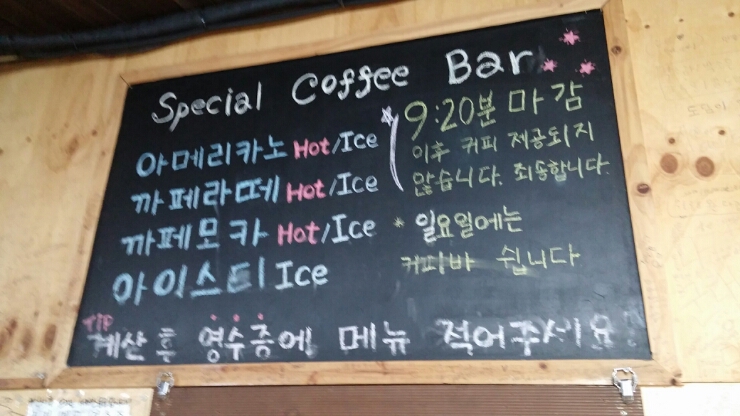 Special Coffee Bar
아메리카노 Hot/Ice
까페라떼 Hot/Ice
까페모카 Hot/Ice
아이스티 Ice
9:20분 마감
이후 커피 제공되지
않습니다. 죄송합니다.
* 일요일에는
커피바 쉽니다
TIP
계산 후 영수증에 메뉴 적어주세요